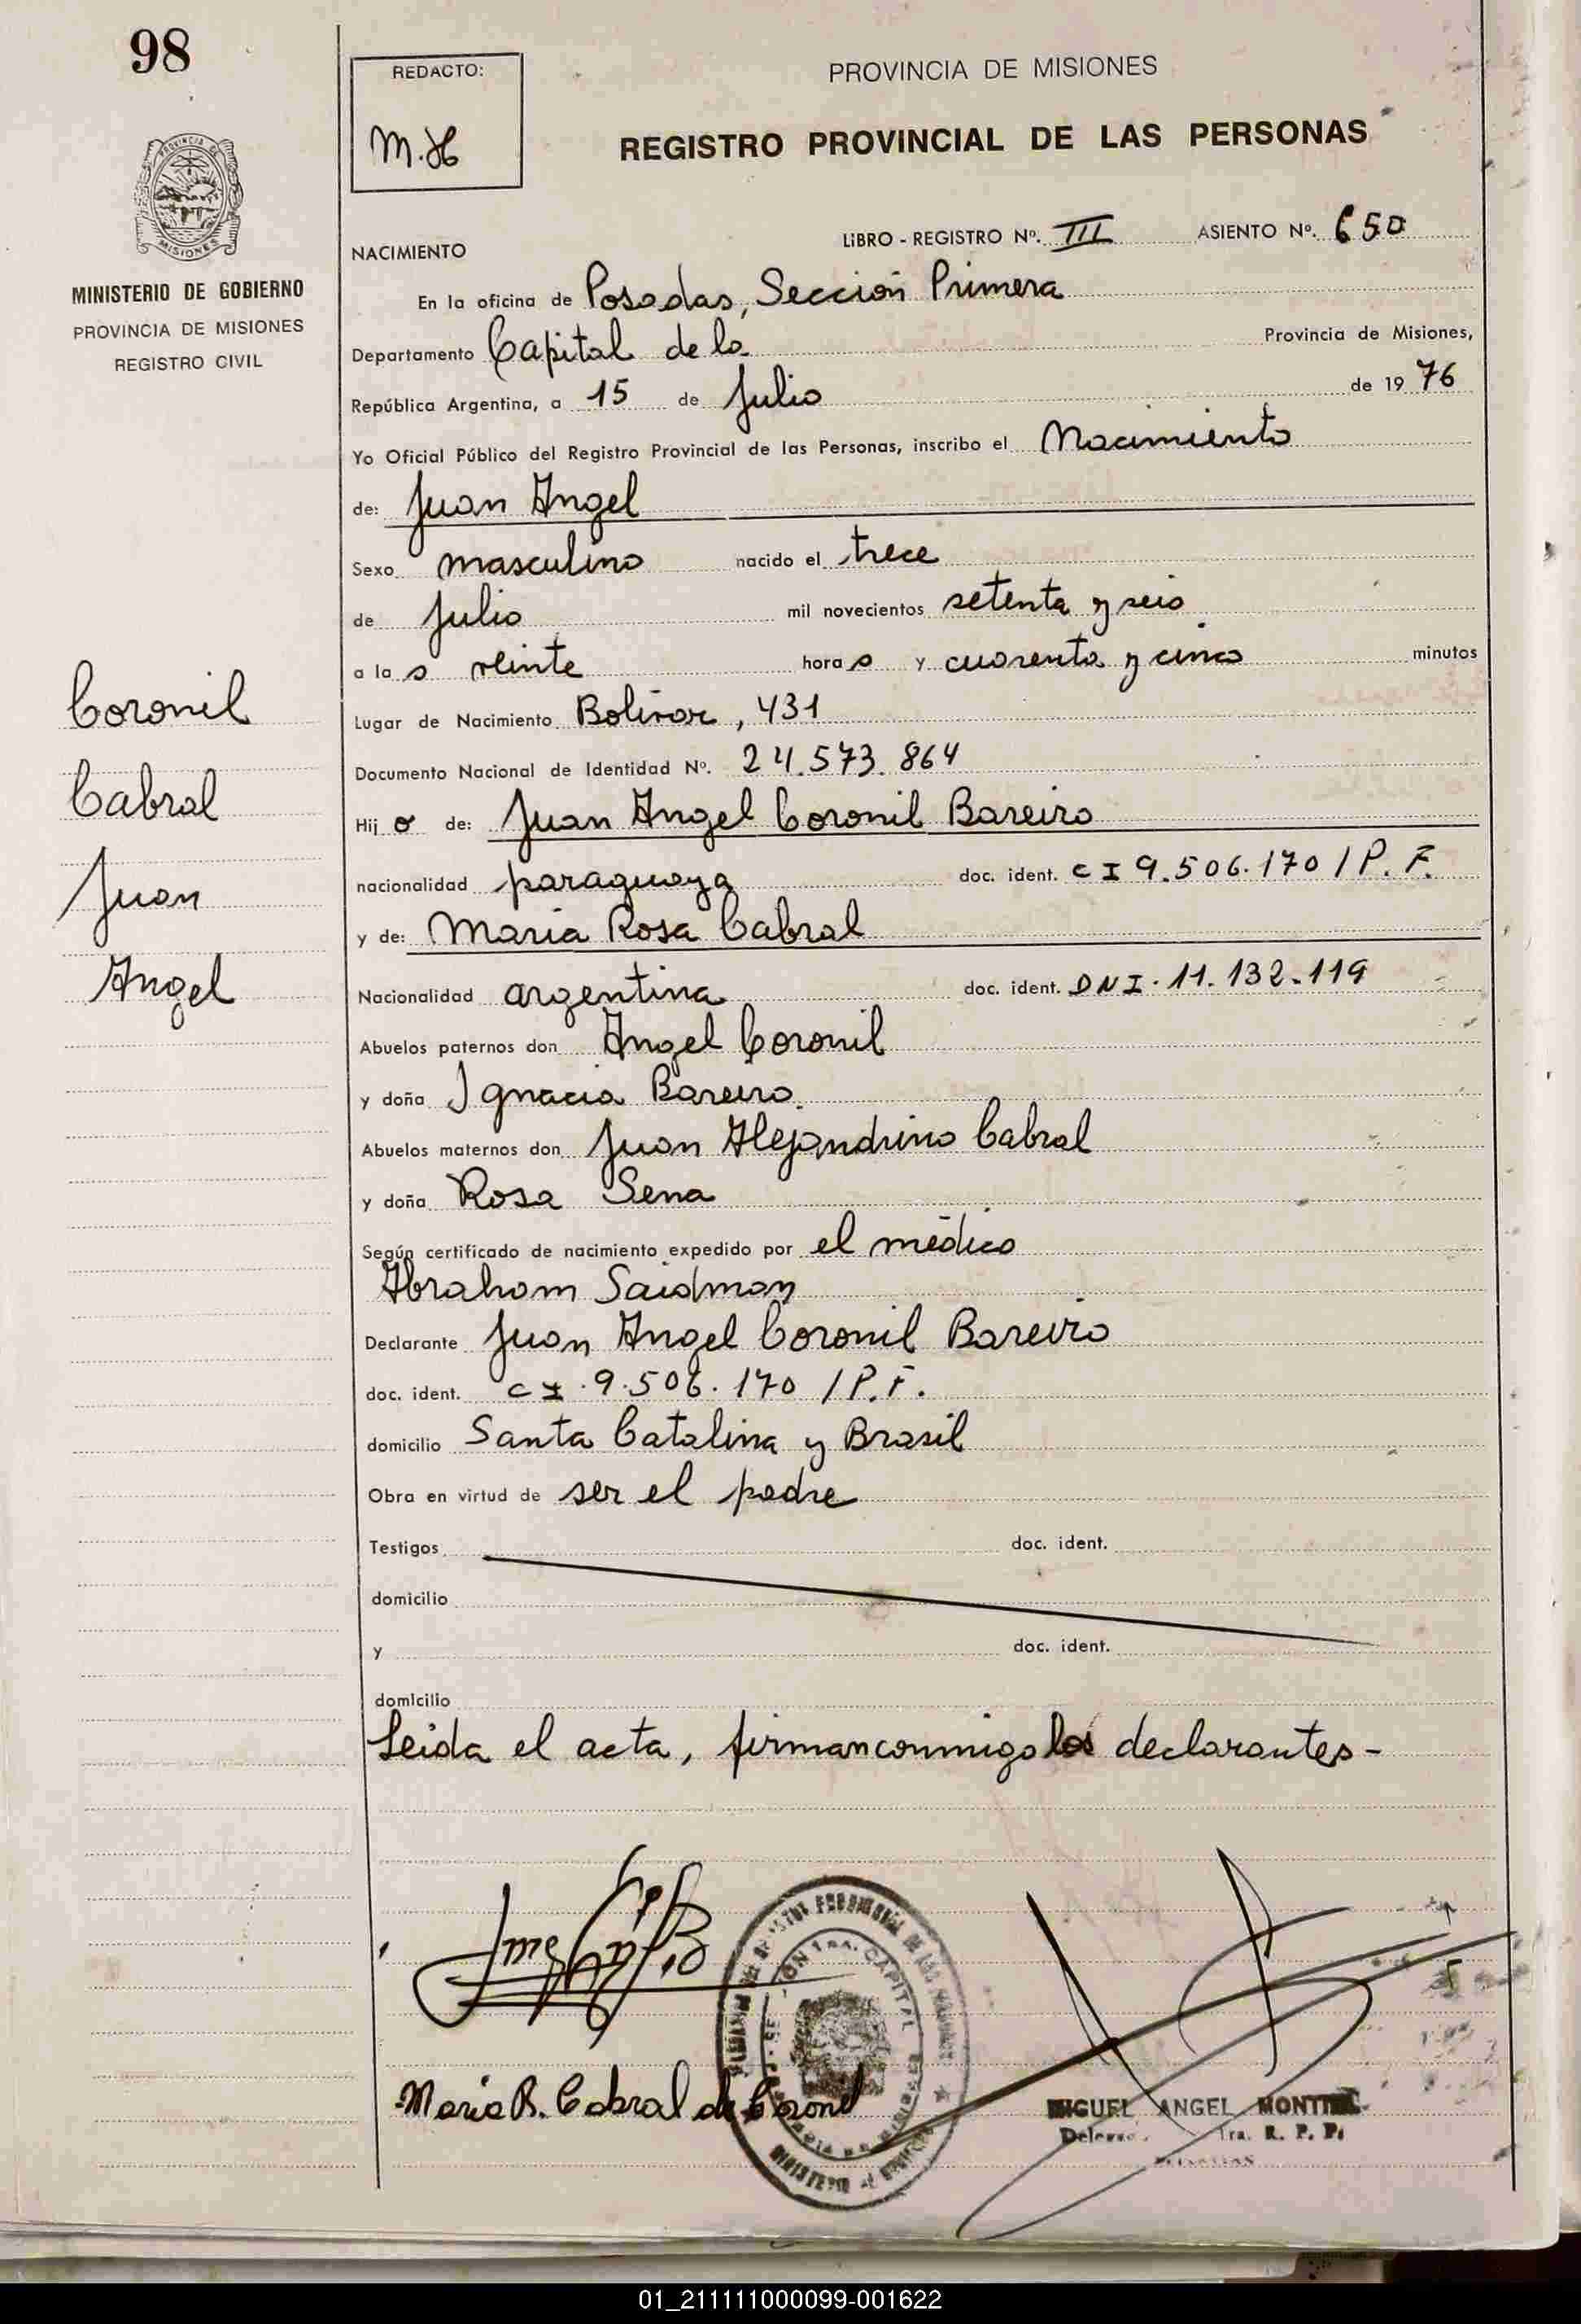 98
REDACTO:
M.H
PROVINCIA DE MISIONES
REGISTRO PROVINCIAL DE LAS PERSONAS
PROVINCIA DE MISIONES
MINISTERIO DE GOBIERNO
PROVINCIA DE MISIONES
REGISTRO CIVIL
NACIMIENTO
LIBRO - REGISTRO Nº. III ASIENTO Nº. 650
En la oficina de Posadas, Sección Primera
Departamento Capital de la Provincia de Misiones,
República Argentina, a 15 de Julio de 19 76
Yo Oficial Público del Registro Provincial de las Personas, inscribo el Nacimiento
de: Juan Angel
Sexo masculino nacido el trece
de Julio mil novecientos setenta y seis
a la s veinte hora s y cuarenta y cinco minutos
Lugar de Nacimiento Bolívar, 431
Documento Nacional de Identidad Nº. 24.573.864
Hij o de: Juan Angel Coronil Bareiro
nacionalidad paraguaya doc. ident. CI 9.506.170 / P. F.
y de: Maria Rosa Cabral
Nacionalidad argentina doc. ident. DNI. 11.132.119
Abuelos paternos don Angel Coronil
y doña Ignacia Bareiro.
Abuelos maternos don Juan Alejandrino Cabral
y doña Rosa Sena
Según certificado de nacimiento expedido por el médico
Abraham Saidman
Declarante Juan Angel Coronil Bareiro
doc. ident. CI. 9.506.170 / P.F.
domicilio Santa Catalina y Brasil
Obra en virtud de ser el padre
Testigos doc. ident.
domicilio
y doc. ident.
domicilio
Leida el acta, firman conmigo los declarantes-
Coronil
Cabral
Juan
Angel
Maria R. Cabral de Coronil
MIGUEL ANGEL MONTIEL
1ra. R. P. P.
01_211111000099-001622